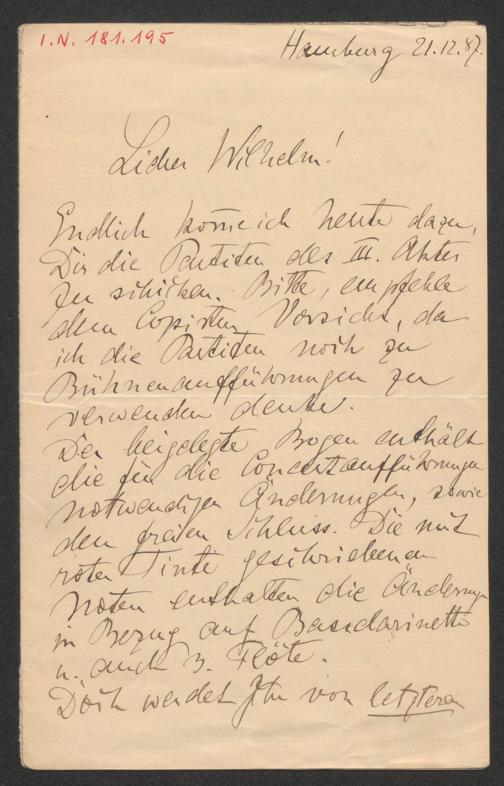 I.N. 181.195
Hamburg 21.12.87.
Lieber Wilhelm!
Endlich kom̄e ich heute dazu,
Dir die Partitur des III. Aktes
zu schicken. Bitte, empfehle
dem Copisten Vorsicht, da
ich die Partitur noch zu
Bühnenaufführungen zu
verwenden denke.
Der beigelegte Bogen enthält
die für die Concertaufführungen
notwendigen Änderungen, sowie
den freien Schluss. Die mit
roter Tinte geschriebenen
Noten enthalten die Änderungen
in Bezug auf Bassclarinette
u. auch 3. Flöte.
Doch werdet Ihr von letzterer